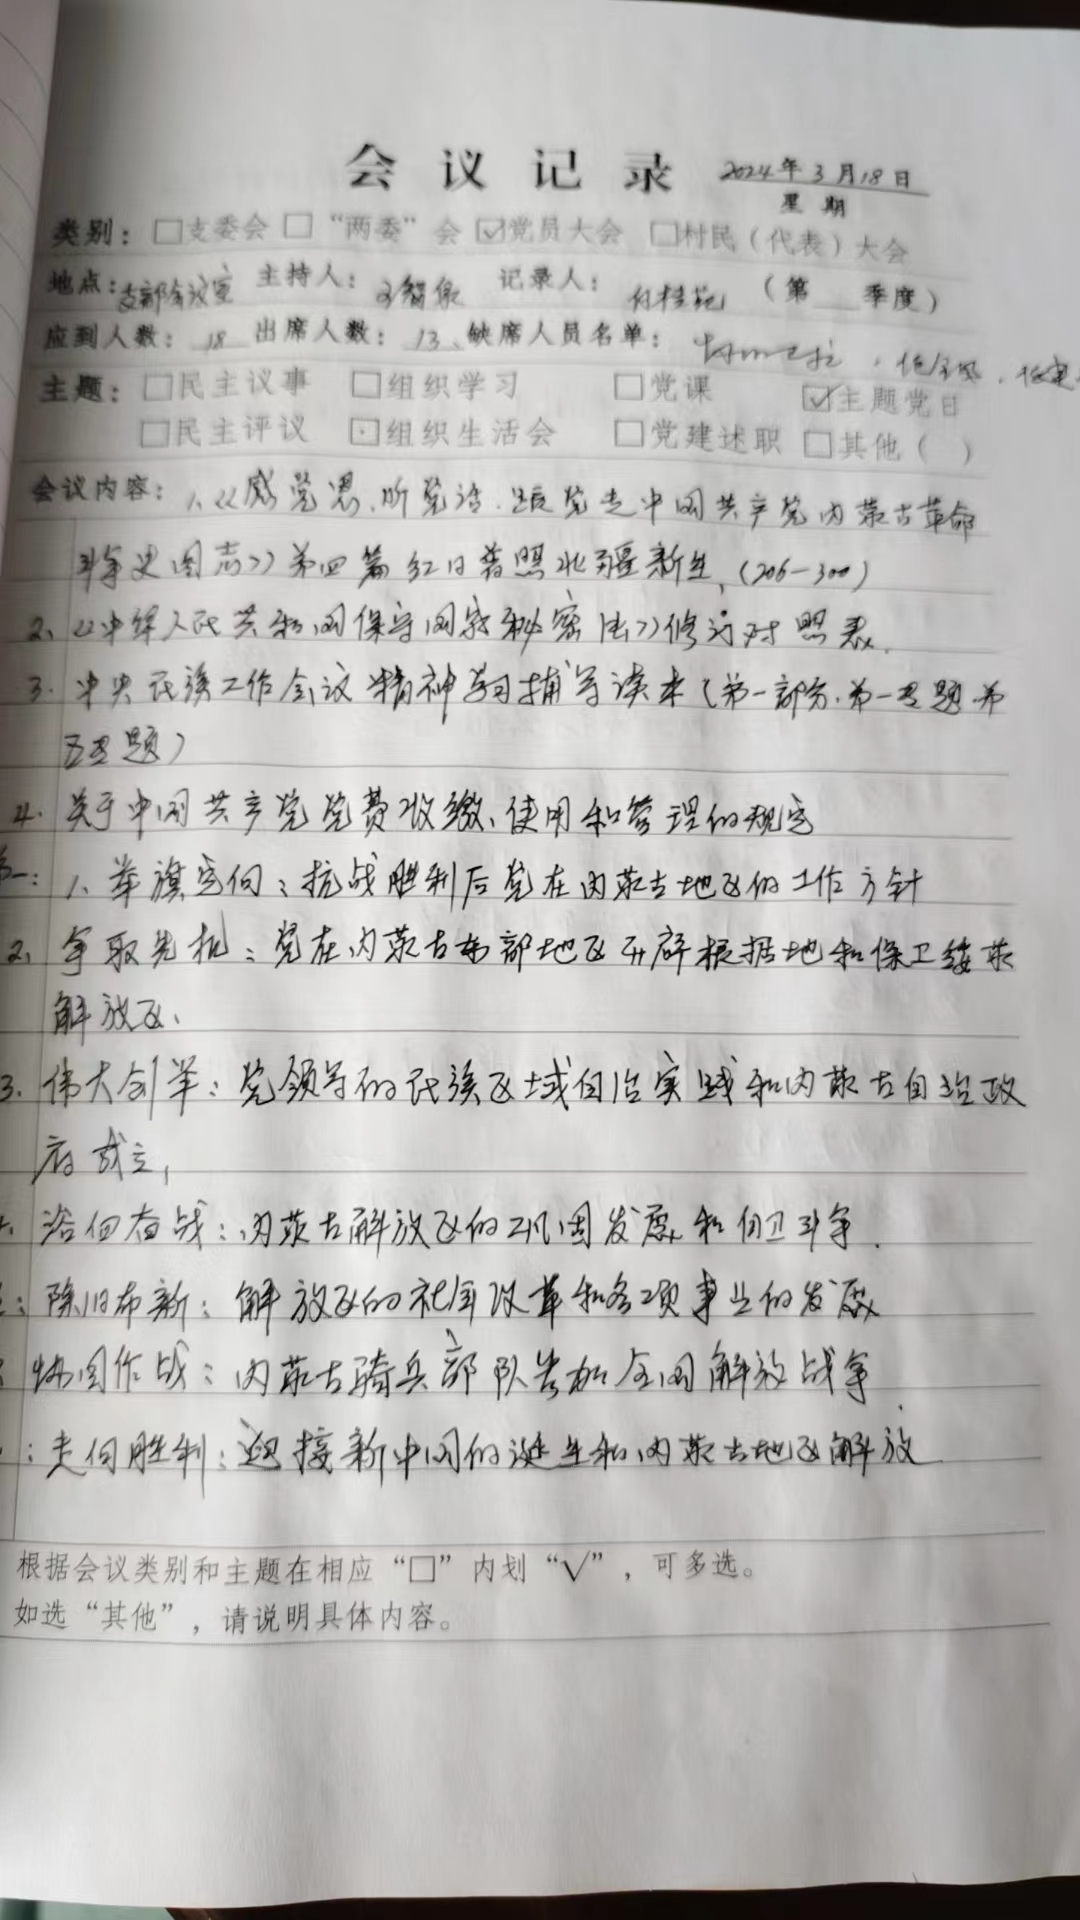 会议记录 2024年3月18日
星期
类别：□支委会 □“两委”会 ☑党员大会 □村民（代表）大会
地点：支部会议室 主持人： 记录人： （第 季度）
应到人数：18 出席人数：13、缺席人员名单：
主题：□民主议事 □组织学习 □党课 ☑主题党日
□民主评议 □组织生活会 □党建述职 □其他（ ）
会议内容：1、《感党恩、听党话、跟党走中国共产党内蒙古革命
斗争史图志》第四篇红日普照北疆新生，（206-300）
2、《中华人民共和国保守国家秘密法》修订对照表、
3、中央民族工作会议精神学习辅导读本（第一部分、第一专题·第
五专题）
4、关于中国共产党党费收缴、使用和管理的规定
1、举旗定向：抗战胜利后党在内蒙古地区的工作方针
2、争取先机：党在内蒙古东部地区开辟根据地和保卫绥蒙
解放区、
3、伟大创举：党领导的民族区域自治实践和内蒙古自治政
府成立，
浴血奋战：内蒙古解放区的巩固发展和自卫斗争．
除旧布新：解放区的社会改革和各项事业的发展
协同作战：内蒙古骑兵部队参加全国解放战争
：走向胜利：迎接新中国的诞生和内蒙古地区解放
根据会议类别和主题在相应“□”内划“√”，可多选。
如选“其他”，请说明具体内容。